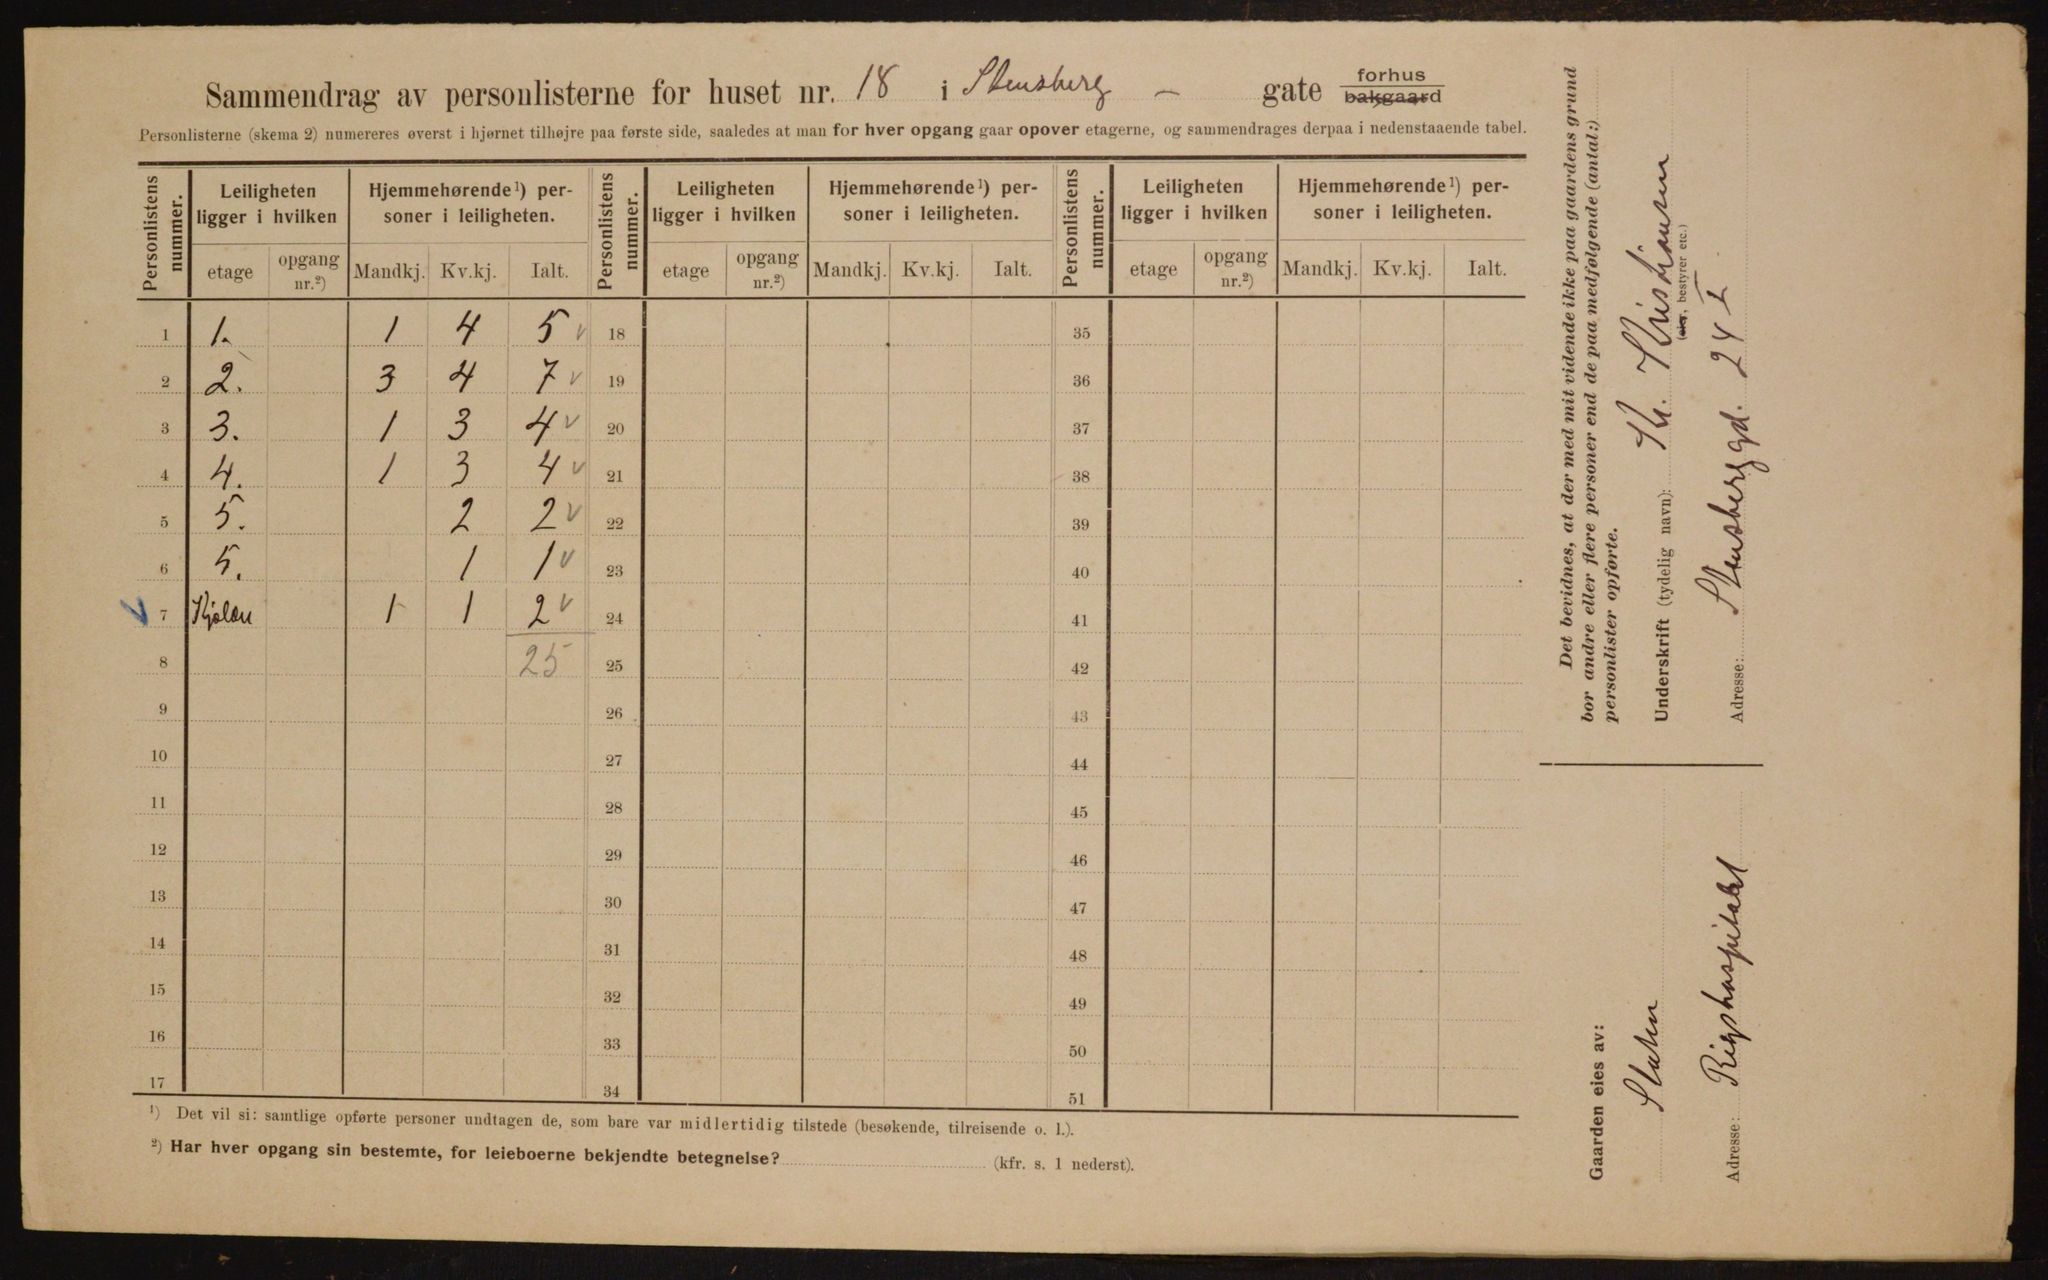 Sammendrag av personlisterne for huset nr. 18 i Stensberg – gate forhus bakgaard
Personlisterne (skema 2) numereres øverst i hjørnet tilhøjre paa første side, saaledes at man for hver opgang gaar opover etagerne, og sammendrages derpaa i nedenstaaende tabel.
Personlistens nummer. Leiligheten ligger i hvilken Hjemmehørende¹) personer i leiligheten. Personlistens nummer. Leiligheten ligger i hvilken Hjemmehørende¹) personer i leiligheten. Personlistens nummer. Leiligheten ligger i hvilken Hjemmehørende¹) personer i leiligheten.
etage opgang nr.²) Mandkj. Kv.kj. Ialt. etage opgang nr.²) Mandkj. Kv.kj. Ialt. etage opgang nr.²) Mandkj. Kv.kj. Ialt.
1 1. 1 4 5 18 35
2 2. 3 4 7 19 36
3 3. 1 3 4 20 37
4 4. 1 3 4 21 38
5 5. 2 2 22 39
6 5. 1 1 23 40
7 Kjelder 1 1 2 24 41
8 25 25 42
9 26 43
10 27 44
11 28 45
12 29 46
13 30 47
14 31 48
15 32 49
16 33 50
17 34 51
¹) Det vil si: samtlige opførte personer undtagen de, som bare var midlertidig tilstede (besøkende, tilreisende o. l.).
²) Har hver opgang sin bestemte, for leieboerne bekjendte betegnelse? (kfr. s. 1 nederst).
Det bevidnes, at der med mit vidende ikke paa gaardens grund
bor andre eller flere personer end de paa medfølgende (antal:)
personlister opførte.
Underskrift (tydelig navn): Kr. Kristiansen
(eier, bestyrer etc.)
Adresse: Stensberggd. 24 I
Gaarden eies av:
Staten
Adresse: Rigshospitalet